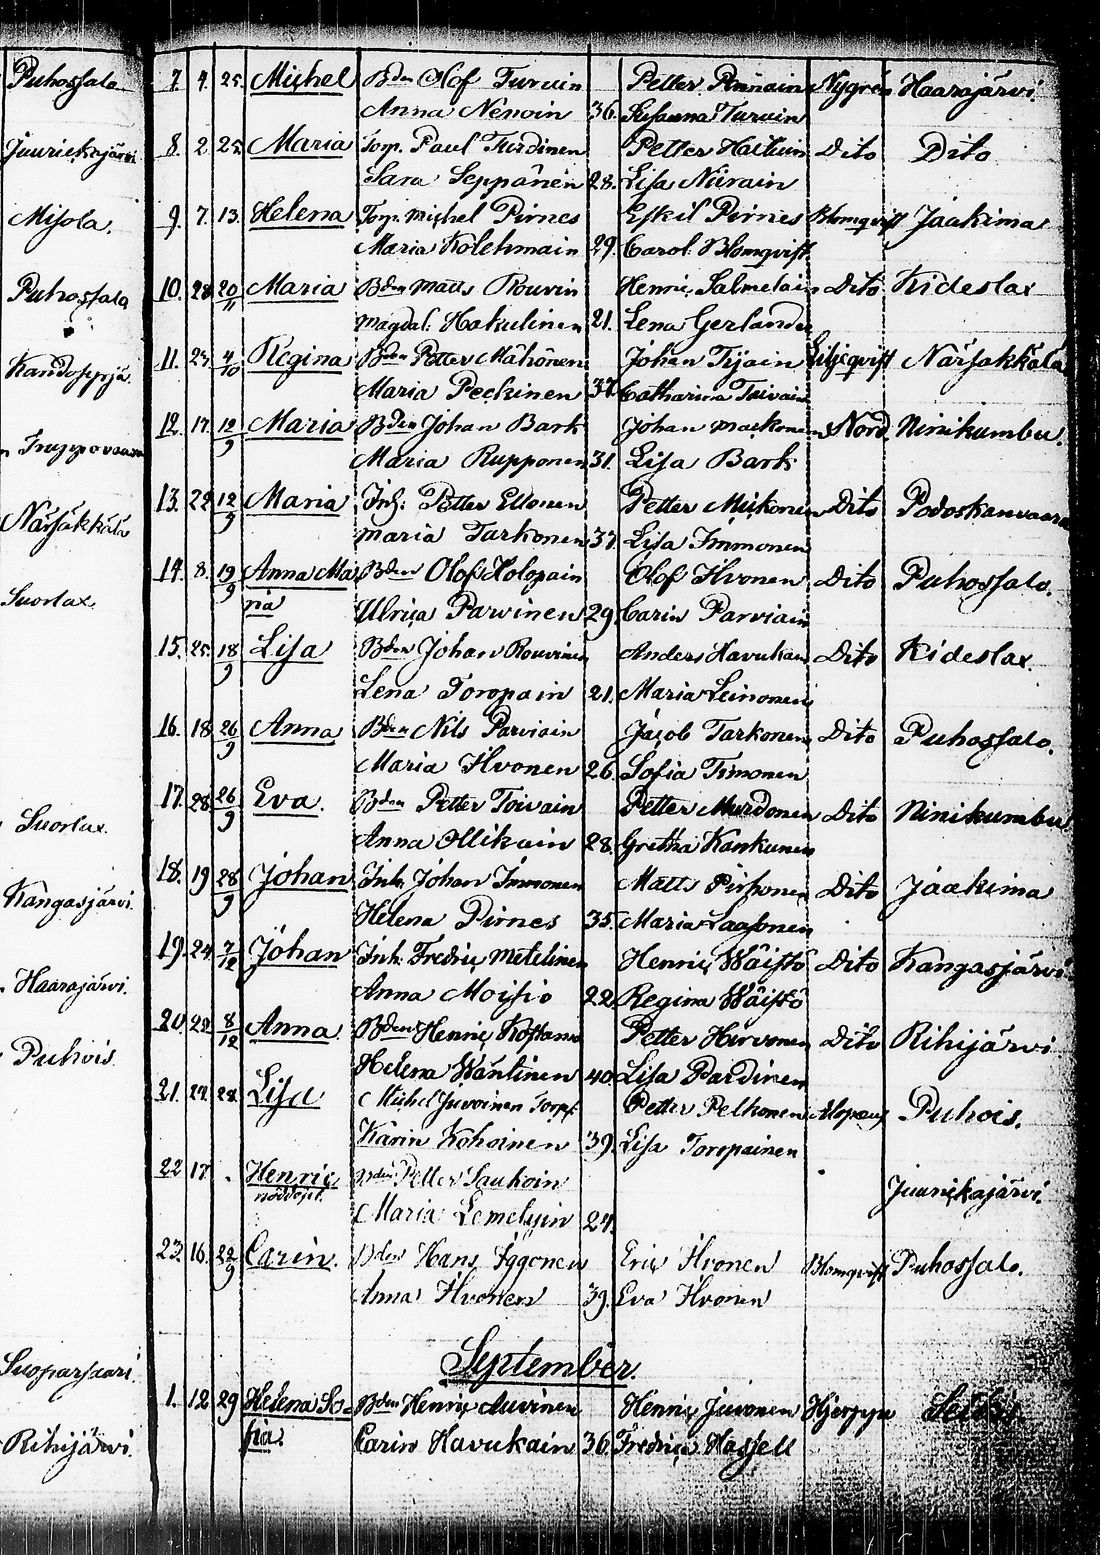 Puhossalo
Juurickajärvi
Misola.
Puhossalo
Kandosyrjä
Närsäkkälä
Suorlax
Suorlax.
Kangasjärvi.
Haarajärvi.
Puhois.
Suoparsaari.
Rihijärvi.
7. 4. 25. Michel Bden Olof Turuin Petter Pennain Nygrén Haarajärvi.
Anna Nenoin 36. Susanna Turuin
8. 2. 25. Maria Torp. Paul Turdinen Petter Haituin Dito Dito
Sara Seppänen 28. Lisa Niirain
9. 7. 13. Helena Torp. Michel Pirnes Eskil Pirnes Blomqvist Jaakima
Maria Kolehmain 29. Carol. Blomqvist
10. 28 20/11 Maria Bden Matts Rouvin Henric Salmelain Dito Kideslax
Magdal. Hakulinen 21. Lena Gerlander
11. 23 4/10 Regina Bden Petter Mähönen Johan Tijain Liljeqvist Närsäkkälä
Maria Peckinen 37. Catharina Toivain
12. 17. 12/9 Maria Bden Johan Bark Johan Mackonen Nord. Ninikumbu.
Maria Rupponen 31. Lisa Bark
13. 22 12/9 Maria Inh. Petter Ellonen Petter Mickonen Dito Podoskanvaara
Maria Tarkonen 37. Lisa Immonen
14. 8. 19/9 Anna Ma Bden Olof Holopain Olof Hvonen Dito Puhossalo.
ria Ulrica Parvinen 29. Carin Parviain
15. 25. 18/9 Lisa Bden Johan Rouvinen Anders Havukan Dito Kideslax.
Lena Toropain 21. Maria Leinonen
16. 18 26/9 Anna Bden Nils Parviain Jacob Tarkonen Dito Puhossalo.
Maria Hvonen 26. Sofia Timonen
17. 28 26/9 Eva. Bden Petter Toivain Petter Murdonen Dito Ninikumbu
Anna Ollikain 28. Gretha Kankunen
18. 19 28/9 Johan Inh. Johan Immonen Matts Pirhonen Dito Jaakima
Helena Pirnes 35. Maria Laasonen
19. 24. 7/12 Johan Inh. Fredric Metelinen Henric Wäistö Dito Kangasjärvi.
Anna Moisio 22. Regina Wäistö
20. 22. 8/12 Anna. Bden Henric Kostamo Petter Hirvonen Dito Rihijärvi
Helena Wäntinen 40. Lisa Pardinen
21. 22. 28. Lisa Michel Juvoinen Torp. Petter Pelkonen Alopaeus Puhois.
Karin Kohoinen 39. Lisa Toropainen
22 17. Henric Bden Petter Saukoin Juurickajärvi.
nöddöpt. Maria Lemelyin 24.
23. 16. 22/9 Carin. Bden Hans Iggonen Eric Hvonen Blomqvist Puhossalo.
Anna Hvonen 39. Eva Hvonen
September.
1. 12 29 Helena So= Bden Henric Auvinen Henric Juvonen Hjerppe
fia. Carin Havukain 36. Fredrica Hassell